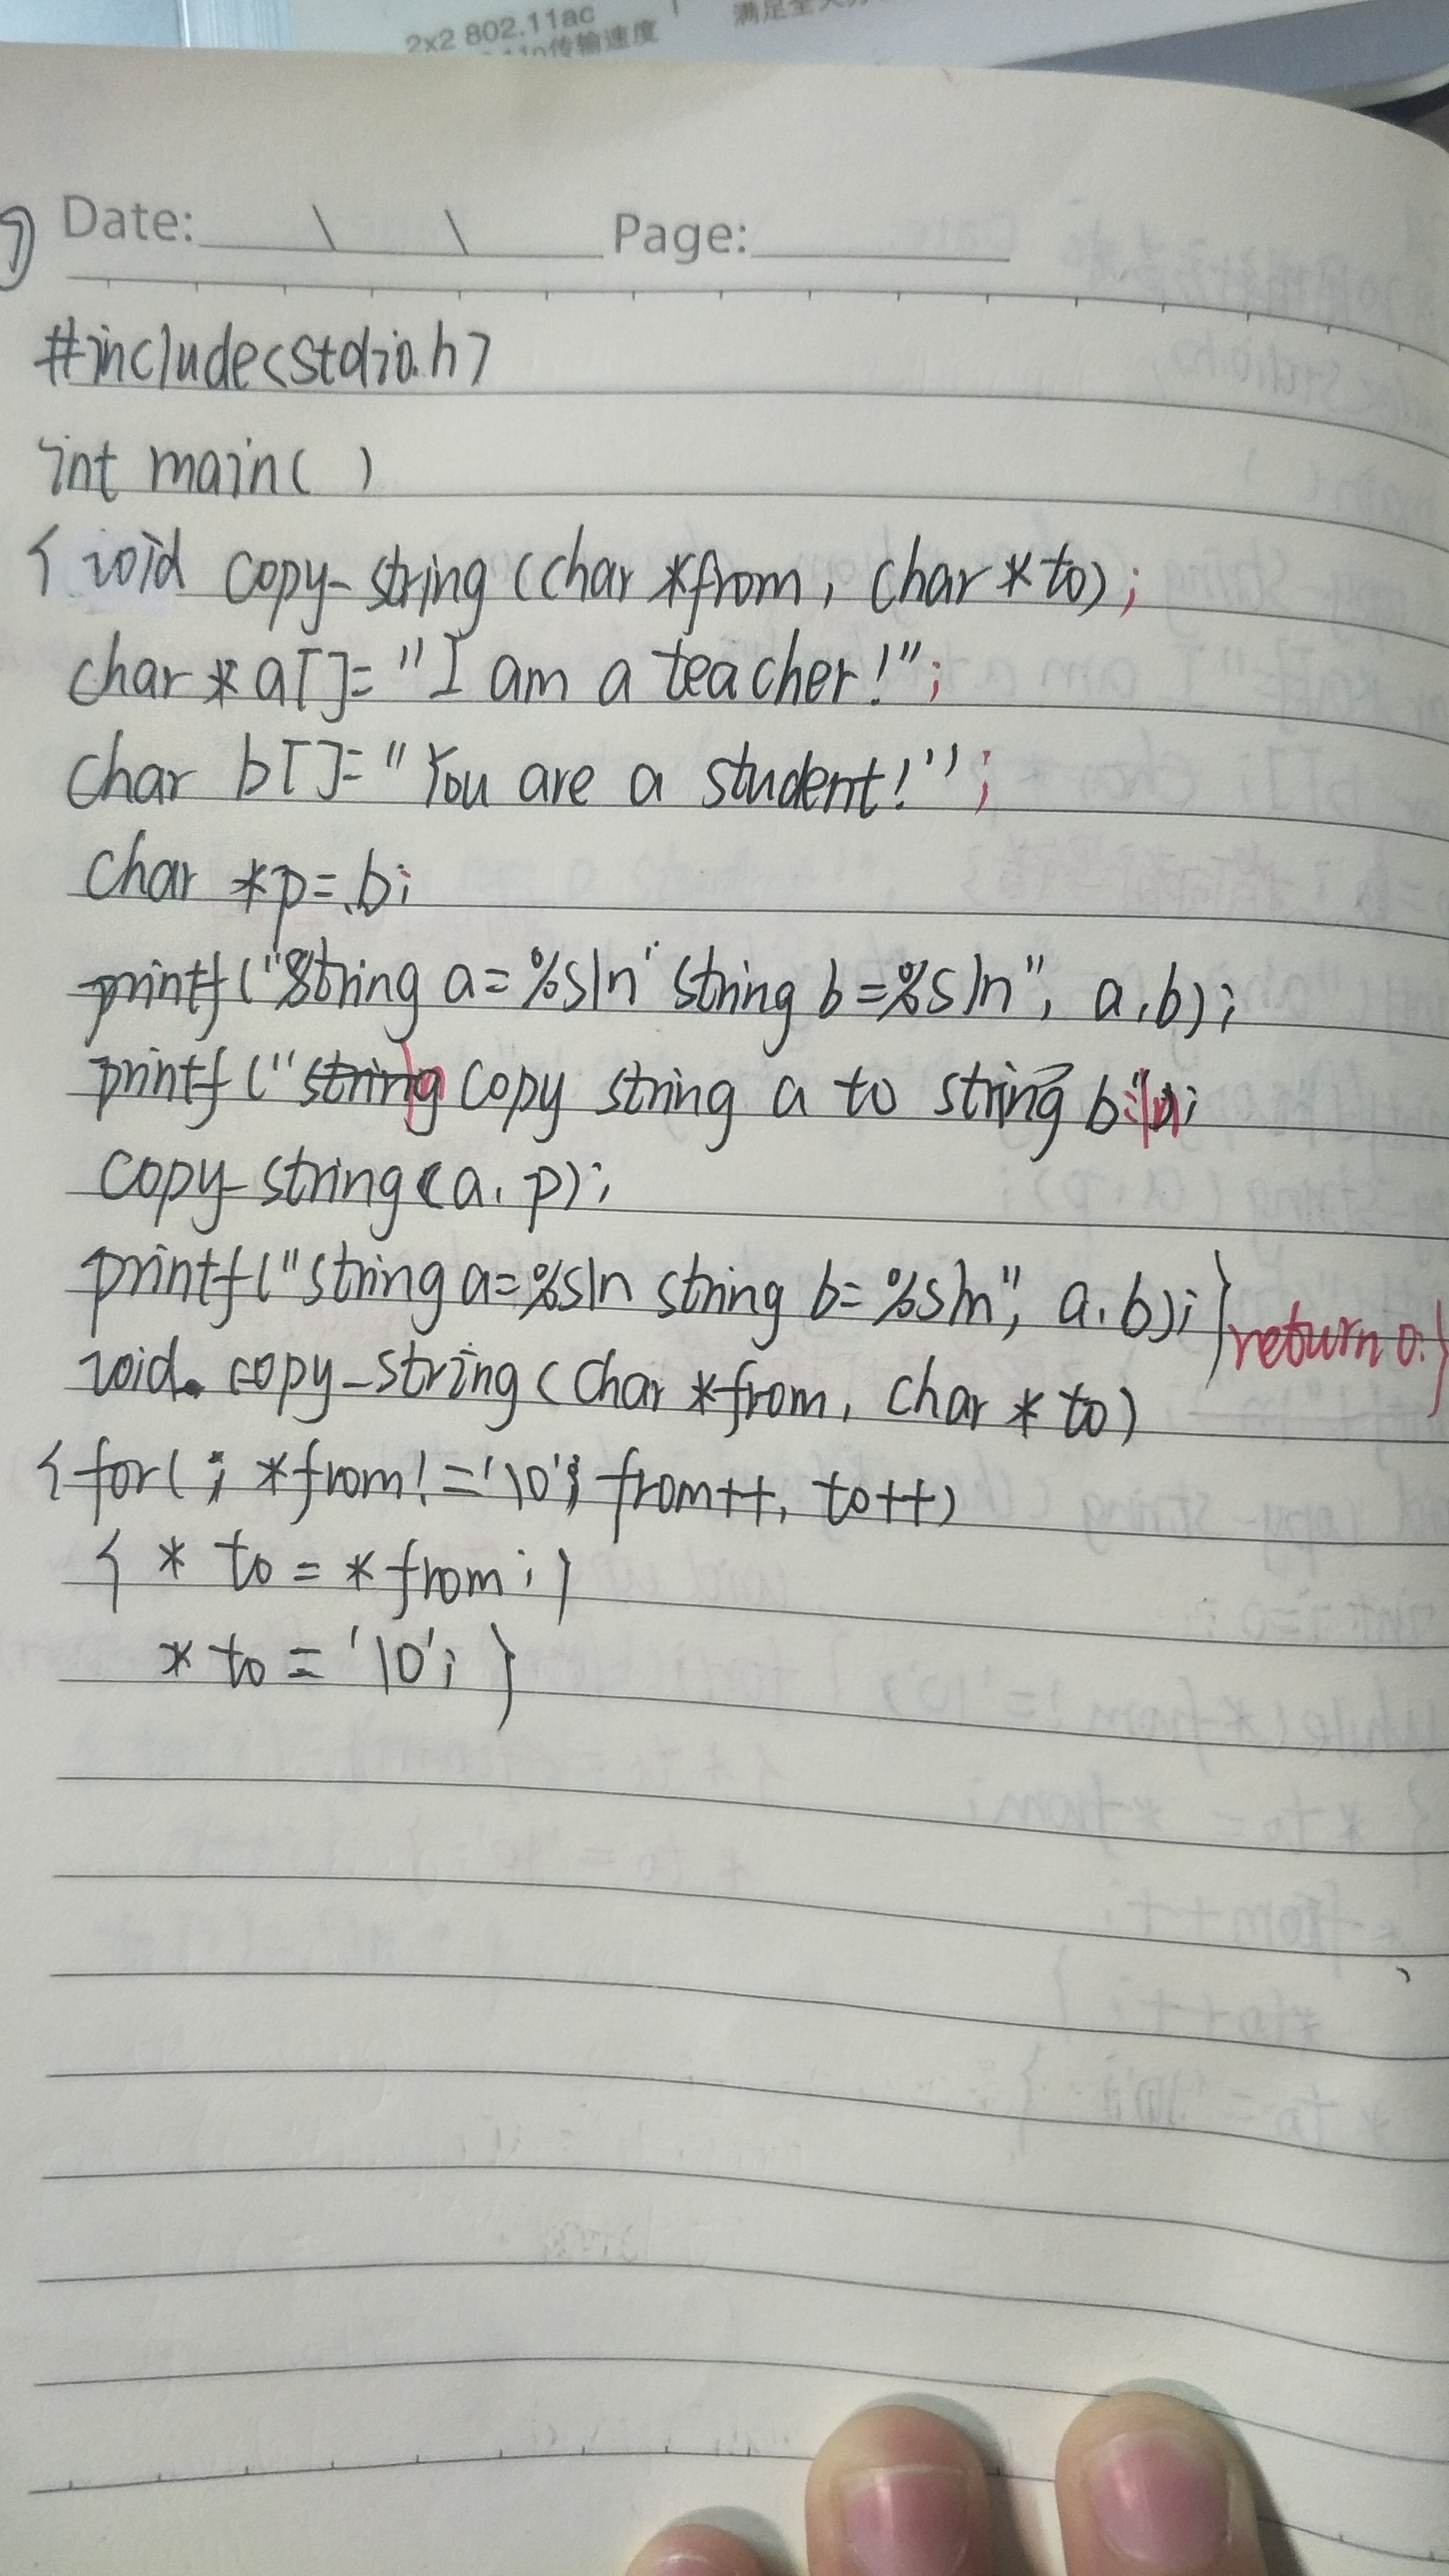 2x2 802.11ac
传输速度
满足全
Date: \ \ Page:
#include<stdio.h>
int main( )
{ void copy-string (char *from, char * to);
char * a[]= "I am a teacher!";
char b[]= "You are a student!";
char *p= b;
printf ("String a=%s\n string b=%s\n", a, b);
printf ("string copy string a to string b:\n");
copy-string(a, p);
printf("string a=%s\n string b= %s\n", a, b); } return 0; }
void copy-string (char *from, char * to)
{ for( ; *from!='\0'; from++, to++)
{ * to = *from; }
* to = '\0'; }